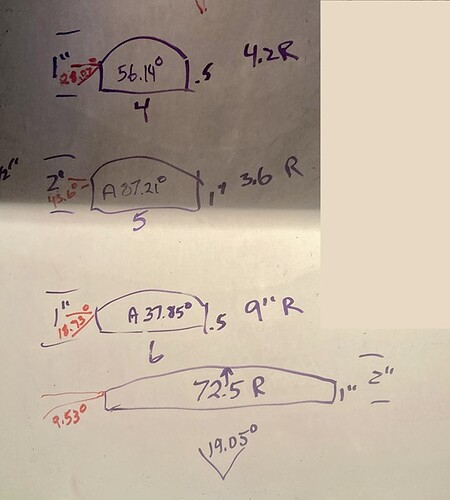 1" 28.07° 56.14° .5 4.2R
4
2" 43.6° A 87.21° 1" 3.6 R
5
1" 18.93° A 37.85° .5 9" R
6
9.53° 72.5 R 1" 2"
19.05°